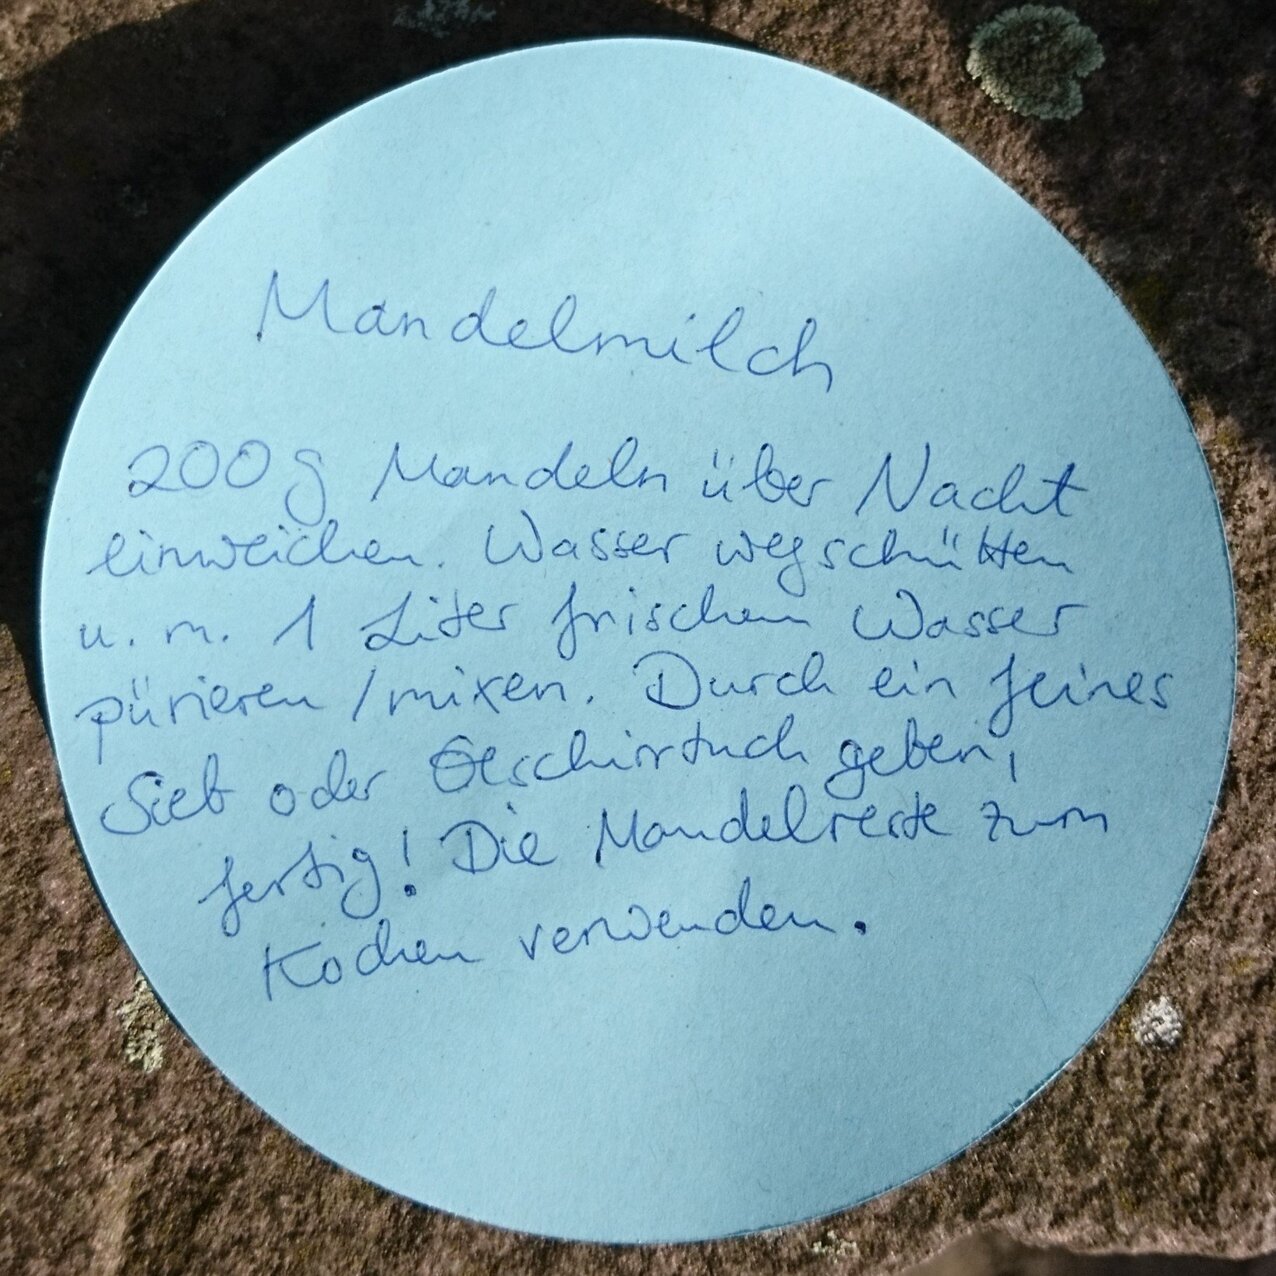 Mandelmilch
200g Mandeln über Nacht
einweichen. Wasser wegschütten
u. m. 1 Liter frischem Wasser
pürieren / mixen. Durch ein feines
Sieb oder Geschirrtuch geben,
fertig! Die Mandelreste zum
Kochen verwenden.